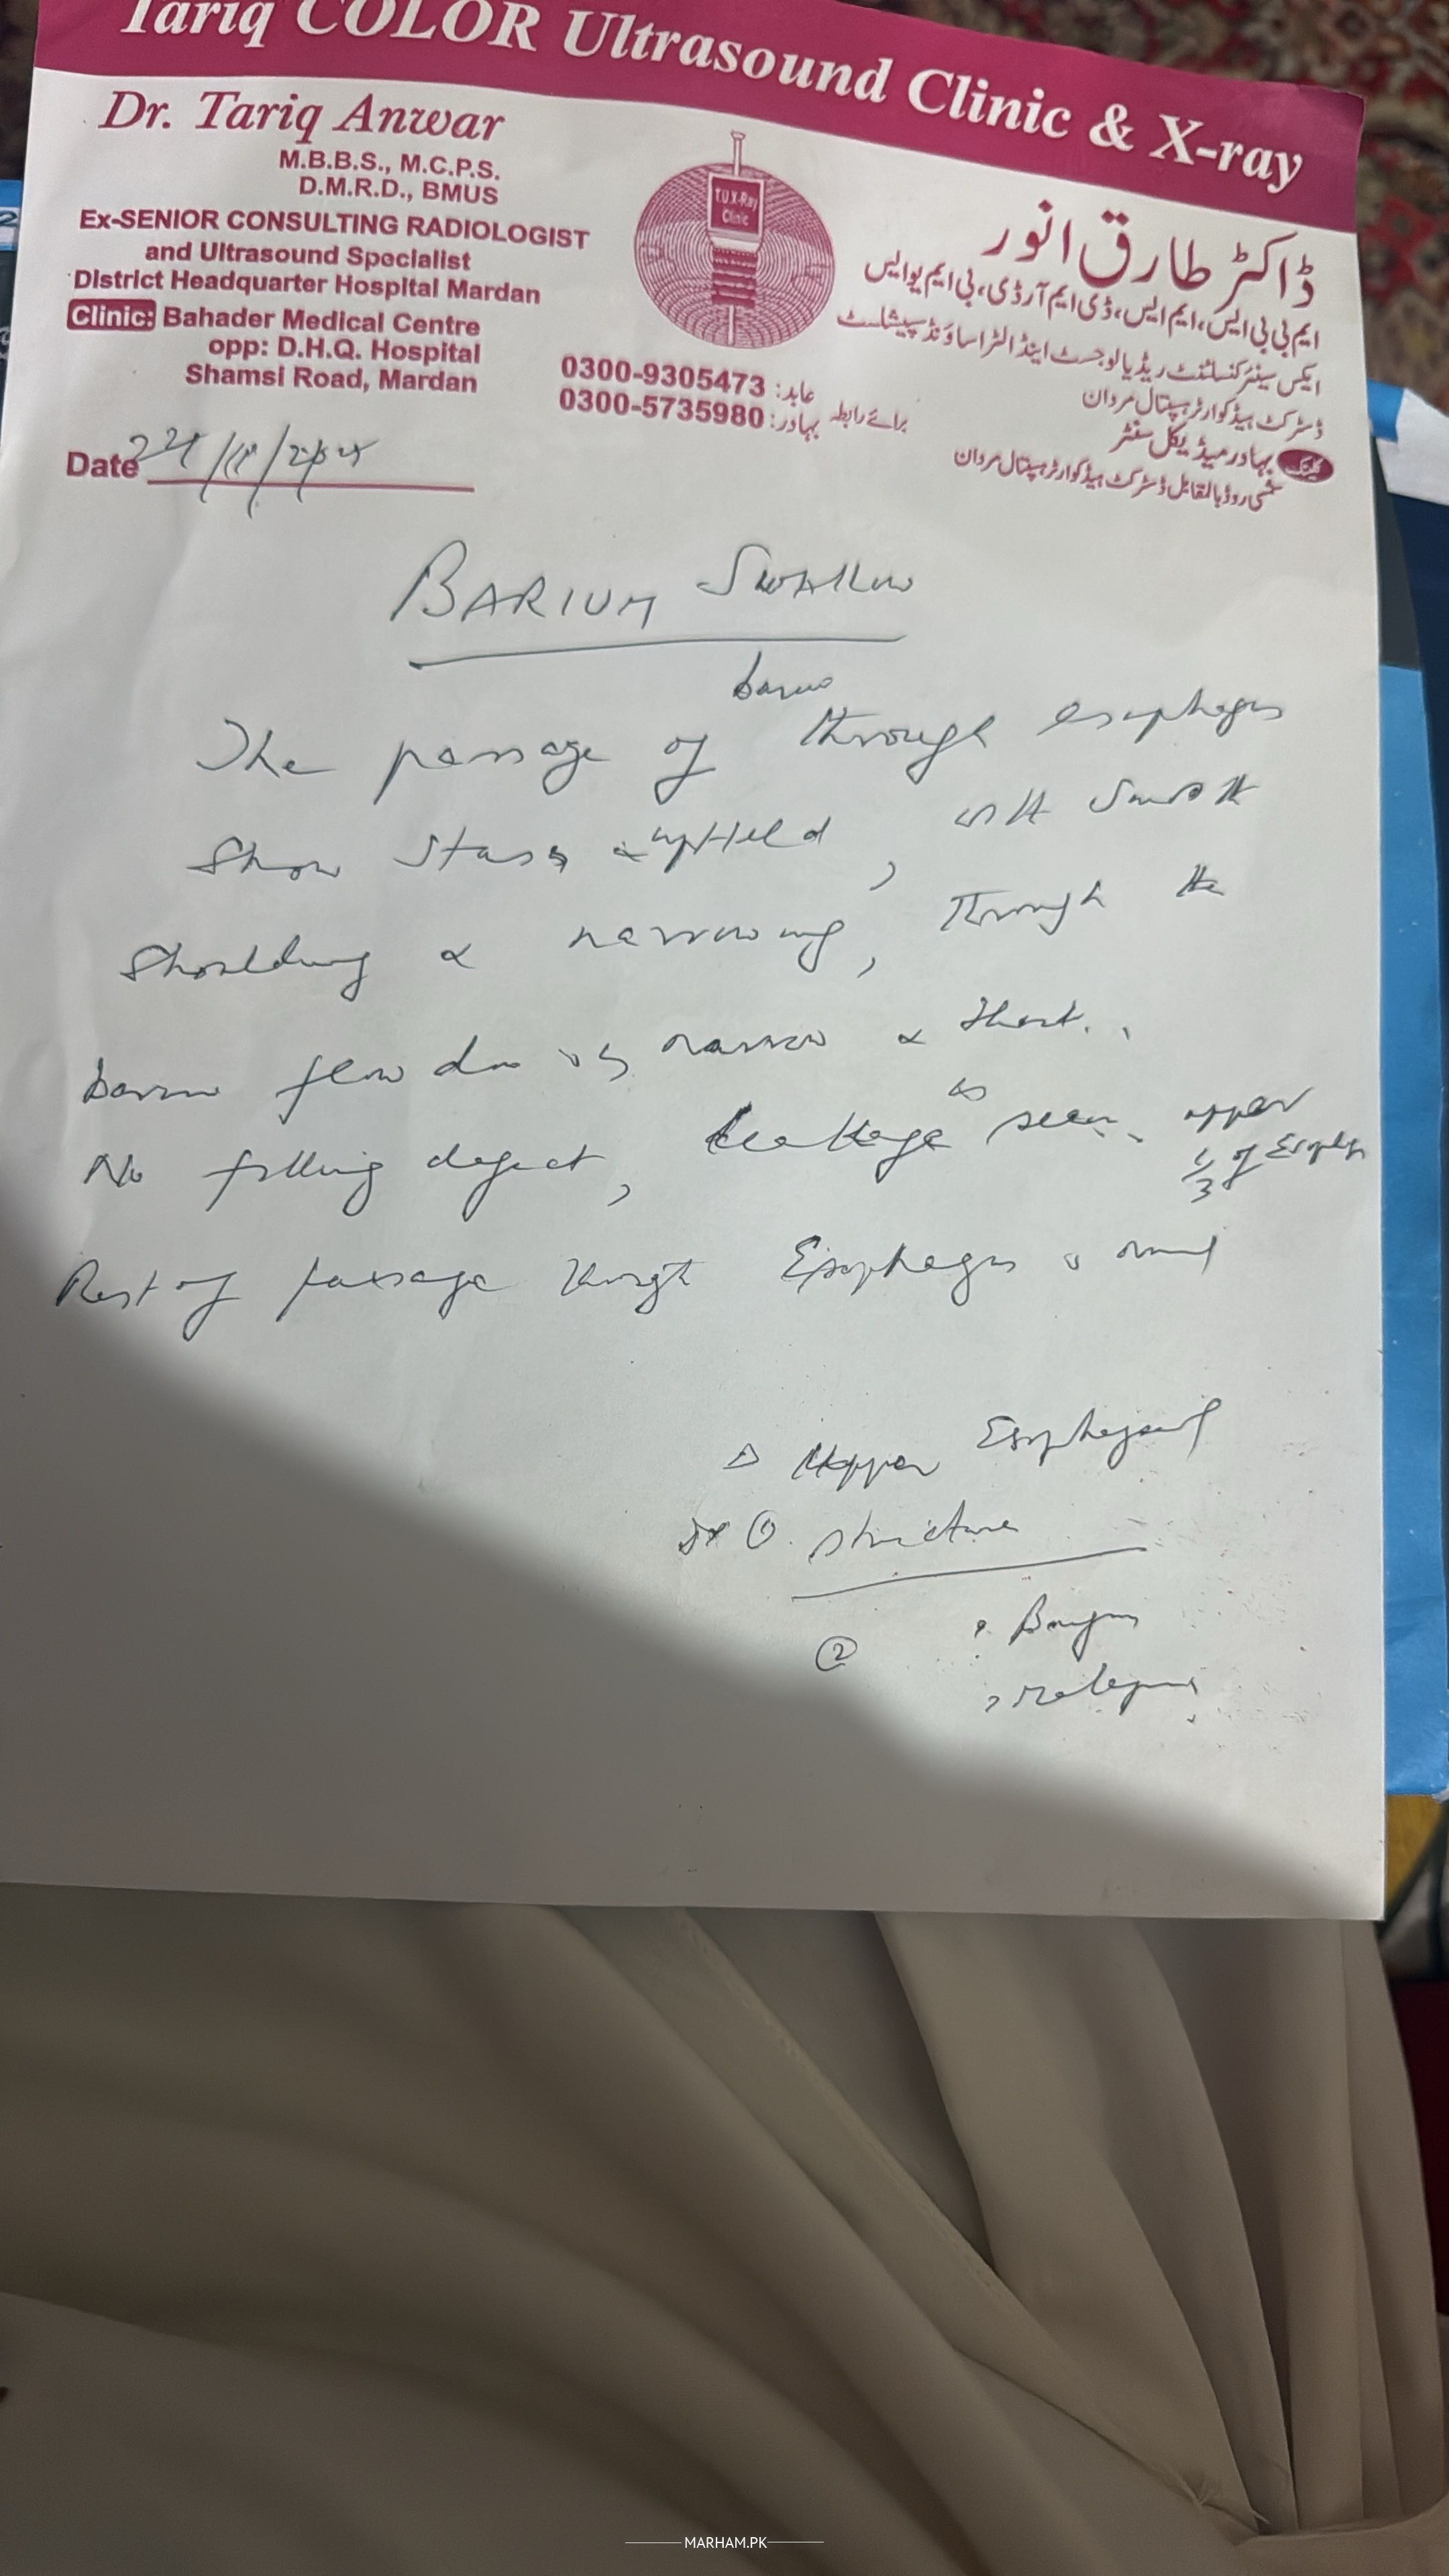 Tariq COLOR Ultrasound Clinic & X-ray
Dr. Tariq Anwar
M.B.B.S., M.C.P.S.
D.M.R.D., BMUS
Ex-SENIOR CONSULTING RADIOLOGIST
and Ultrasound Specialist
District Headquarter Hospital Mardan
Clinic: Bahader Medical Centre
opp: D.H.Q. Hospital
Shamsi Road, Mardan
T.U X-Ray
Clinic
ڈاکٹر طارق انور
ایم بی بی ایس، ایم سی پی ایس، ڈی ایم آر ڈی، بی ایم یو ایس
ایکس سینئر کنسلٹنٹ ریڈیالوجسٹ اینڈ الٹراساؤنڈ سپیشلسٹ
ڈسٹرکٹ ہیڈکوارٹر ہسپتال مردان
کلینک بہادر میڈیکل سنٹر
شمسی روڈ بالمقابل ڈسٹرکٹ ہیڈکوارٹر ہسپتال مردان
برائے رابطہ
عابد: 0300-9305473
بہادر: 0300-5735980
Date
BARIUM Swallow
The passage of through esophagus
Show stasis, with smooth
Shouldering & narrowing, through the
flow narrow & short.
No filling defect, leakage is seen. upper
1/3 of
Rest of passage through Esophagus is
Upper Esophageal
① stricture
②
MARHAM.PK